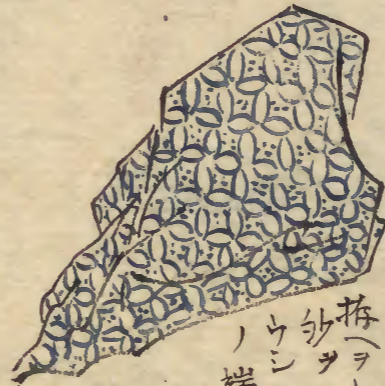 拵ヘヲ
紗ヲ
ウシ
ノ端